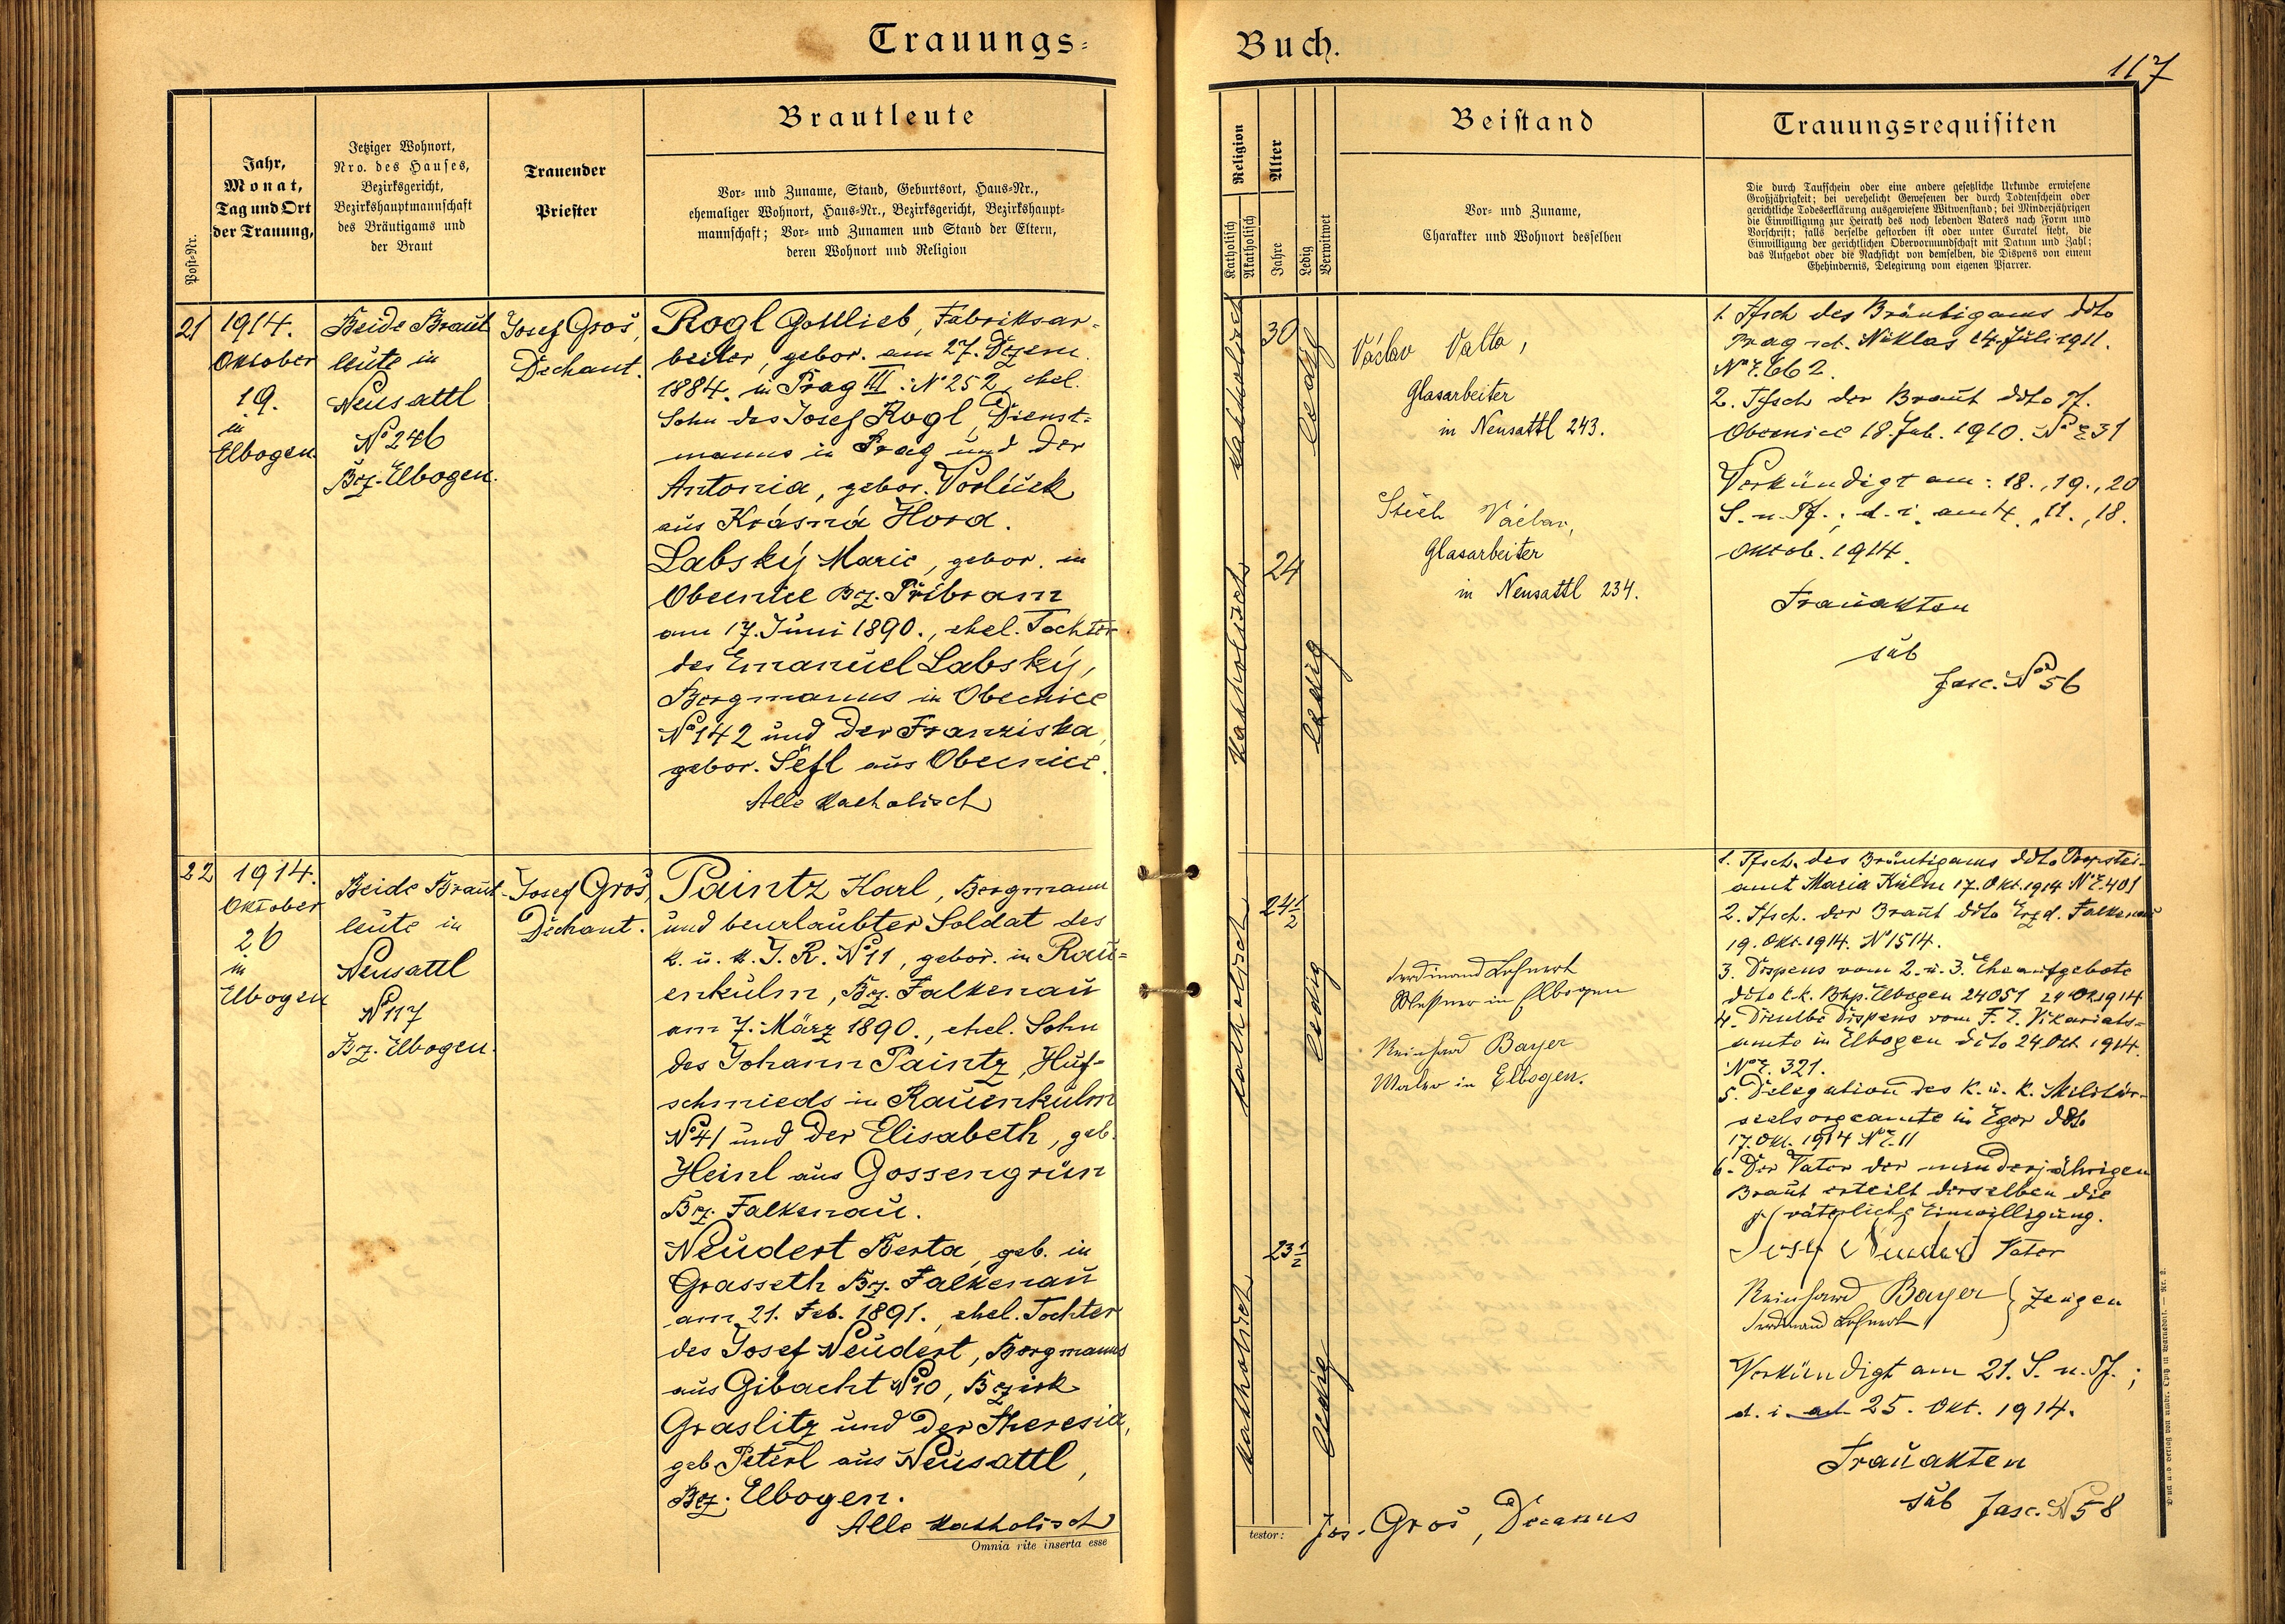 Trauungs-
Buch.
117
Post-Nr.
Jahr,
Monat,
Tag und Ort
der Trauung,
Jetziger Wohnort,
Nro. des Hauses,
Bezirksgericht,
Bezirkshauptmannschaft
des Bräutigams und
der Braut
Trauender
Priester
Brautleute
Vor- und Zuname, Stand, Geburtsort, Haus-Nr.,
ehemaliger Wohnort, Haus-Nr., Bezirksgericht, Bezirkshaupt-
mannschaft; Vor- und Zunamen und Stand der Eltern,
deren Wohnort und Religion
Religion
Katholisch
Akatholisch
Alter
Jahre
Ledig
Verwitwet
Beistand
Vor- und Zuname,
Charakter und Wohnort desselben
Trauungsrequisiten
Die durch Taufschein oder eine andere gesetzliche Urkunde erwiesene
Großjährigkeit; bei verehelicht Gewesenen der durch Todtenschein oder
gerichtliche Todeserklärung ausgewiesene Witwenstand; bei Minderjährigen
die Einwilligung zur Heirath des noch lebenden Vaters nach Form und
Vorschrift; falls derselbe gestorben ist oder unter Curatel steht, die
Einwilligung der gerichtlichen Obervormundschaft mit Datum und Zahl;
das Aufgebot oder die Nachsicht von demselben, die Dispens von einem
Ehehindernis, Delegirung vom eigenen Pfarrer.
21
1914.
Oktober
19.
in
Elbogen
Beide Braut
leute in
Neusattl
No 246
Bez. Elbogen.
Josef Groš,
Dechant.
Rogl Gottlieb, Fabriksar-
beiter, gebor. am 27. Dezem.
1884. in Prag III: No 252, ehel.
Sohn des Josef Rogl, Dienst-
manns in Prag und der
Antonia, gebor. Vorlíček
aus Krásná Hord.
Labský Marie, gebor. in
Obecnice Bez. Příbram
am 17. Juni 1890., ehel. Tochter
des Emanuel Labský,
Bergmanns in Obecnice
No 142 und der Franziska,
gebor. Šefl aus Obecnice.
Alle katholisch
katholisch
30
ledig
katholisch
24
ledig
Václav Valta,
Glasarbeiter
in Neusattl 243.
Václav,
Glasarbeiter
in Neusattl 234.
1. Tfsch des Bräutigams ddto
Prag Niklas 14. Juli 1911.
No E. 662.
2. Tfsch der Braut ddto Pf.
Obecnice 18. Feb. 1910. No E 31
Verkündigt am: 18., 19., 20
S. n. Pf.; d. i. am 4., 11., 18.
Oktob. 1914.
Trauakten
sub
fasc. No 56
22
1914.
Oktober
26
in
Elbogen
Beide Braut-
leute in
Neusattl
No 117
Bez. Elbogen.
Josef Groš,
Dechant.
Paintz Karl, Bergmann
und beurlaubter Soldat des
k. u. k. I. R. No 11, gebor. in Rau-
enkulm, Bez. Falkenau
am 7. März 1890., ehel. Sohn
des Johann Paintz, Huf-
schmieds in Rauenkulm
No 41 und der Elisabeth, geb.
Heinl aus Gossengrün
Bez. Falkenau.
Neudert Berta, geb. in
Grasseth Bez. Falkenau
am 21. Feb. 1891., ehel. Tochter
des Josef Neudert, Bergmanns
aus Gibacht No 10, Bezirk
Graslitz und der Theresia,
geb. Peterl aus Neusattl,
Bez. Elbogen.
Alle katholisch
Omnia rite inserta esse
katholisch
24 1/2
ledig
katholisch
23 1/2
ledig
Ferdinand Lehnert
Messner in Elbogen
Reinhard Bayer
Maler in Elbogen.
testor: Jos. Groš, Decanus
1. Tfsch. des Bräutigams ddto Propstei-
amt Maria Kulm 17. Okt. 1914 No E. 401
2. Tfsch. der Braut ddto Erzd. Falkenau
19. Okt. 1914. No 1514.
3. Dispens vom 2. u. 3. Eheaufgebote
ddto k. k. Bhp. Elbogen 24051 24 Okt 1914
4. Dieselbe Dispens vom F. E. Vikariats-
amte in Elbogen ddto 24 Okt 1914.
No E. 321.
5. Delegation des k. u. k. Militär-
seelsorgeamte in Eger ddto
17. Okt. 1914 No E. 11
6. Der Vater der minderjährigen
Braut erteilt derselben die
väterliche Einwilligung.
Josef Neudert Vater
Reinhard Bayer } Zeugen
Ferdinand Lehnert
Verkündigt am 21. S. n. Pf.;
d. i. am 25. Okt. 1914.
Trauakten
sub fasc. No 58